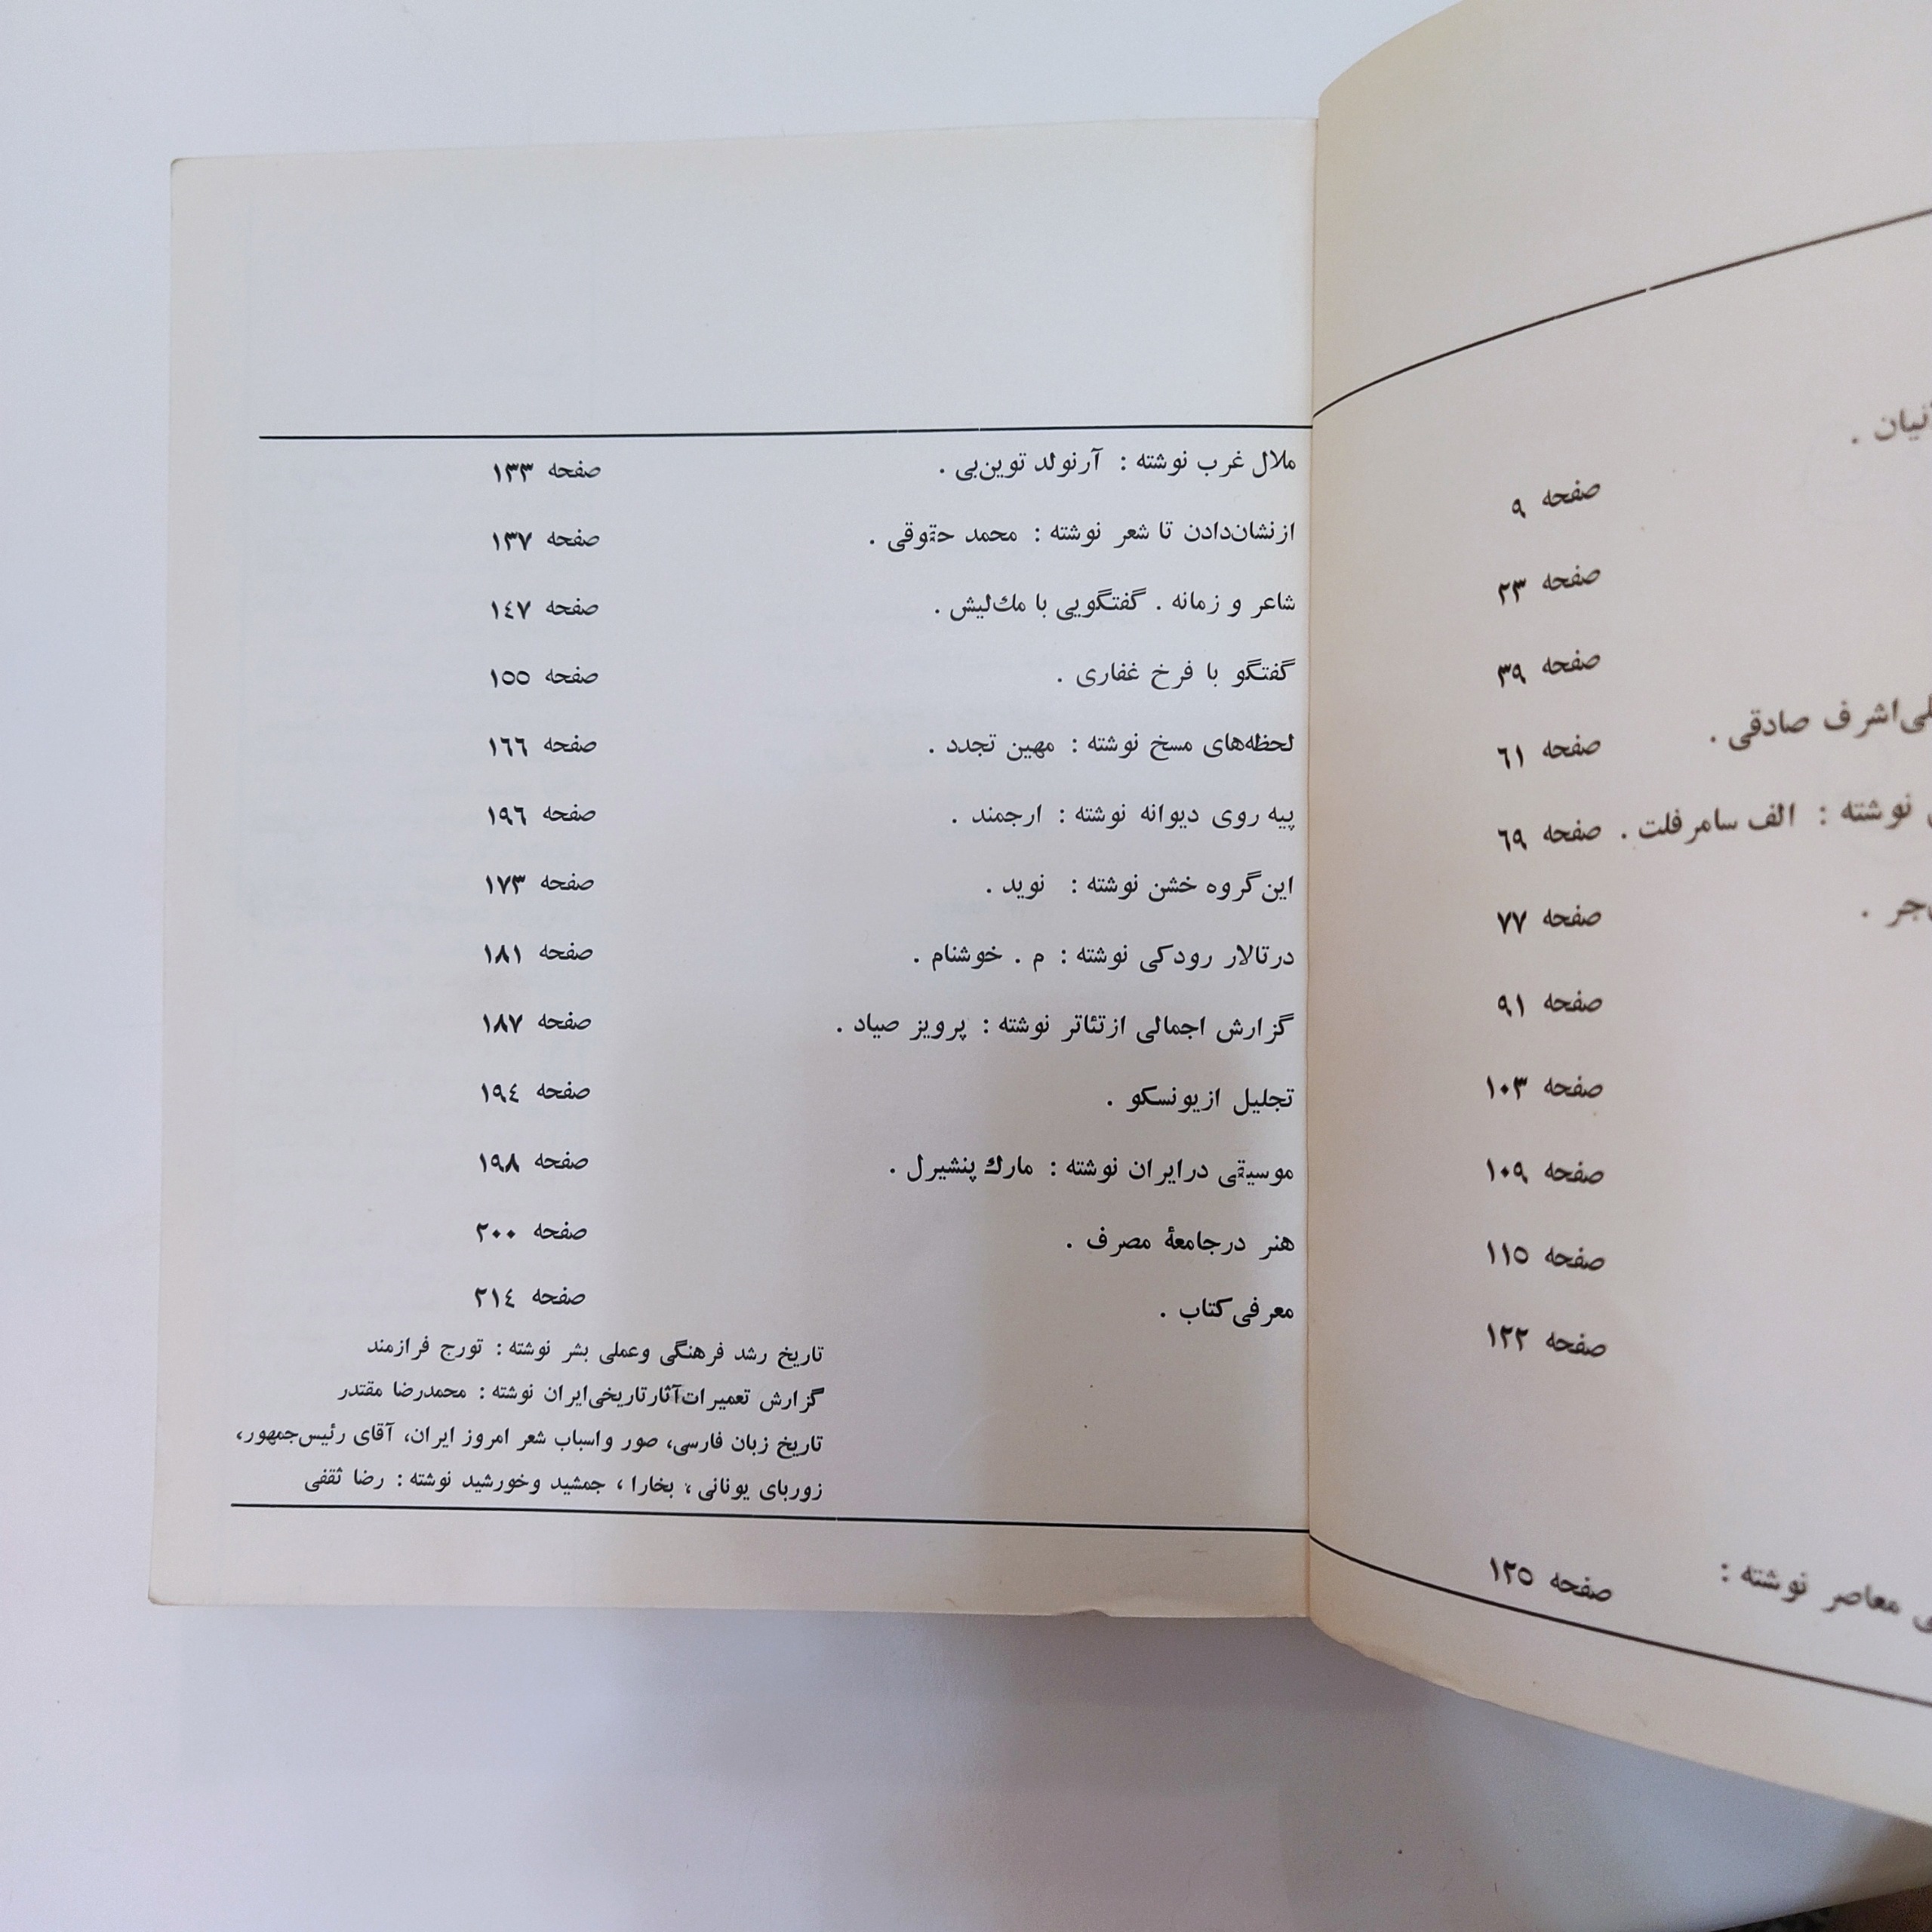 نیان .
صفحه ۹
صفحه ۲۳
صفحه ۳۹
اشرف صادقی .
صفحه ٦۱
نوشته : الف سامرفلت . صفحه ٦۹
صفحه ۷۷
صفحه ۹۱
صفحه ۱۰۳
صفحه ۱۰۹
صفحه ۱۱٥
صفحه ۱۲۲
معاصر نوشته :
صفحه ۱۲٥
ملال غرب نوشته : آرنولد توین‌بی . صفحه ۱۳۳
ازنشان‌دادن تا شعر نوشته : محمد حقوقی . صفحه ۱۳۷
شاعر و زمانه . گفتگویی با مك‌لیش . صفحه ۱٤۷
گفتگو با فرخ غفاری . صفحه ۱٥٥
لحظه‌های مسخ نوشته : مهین تجدد . صفحه ۱٦٦
پیه روی دیوانه نوشته : ارجمند . صفحه ۱۹٦
این‌گروه خشن نوشته : نوید . صفحه ۱۷۳
درتالار رودکی نوشته : م . خوشنام . صفحه ۱۸۱
گزارش اجمالی ازتئاتر نوشته : پرویز صیاد . صفحه ۱۸۷
تجلیل ازیونسکو . صفحه ۱۹٤
موسیقی درایران نوشته : مارك پنشیرل . صفحه ۱۹۸
هنر درجامعهٔ مصرف . صفحه ۲۰۰
معرفی‌کتاب . صفحه ۲۱٤
تاریخ رشد فرهنگی وعملی بشر نوشته : تورج فرازمند
گزارش تعمیرات‌آثارتاریخی‌ایران نوشته : محمدرضا مقتدر
تاریخ زبان فارسی، صور واسباب شعر امروز ایران، آقای رئیس‌جمهور،
زوربای یونانی ، بخارا ، جمشید وخورشید نوشته : رضا ثقفی